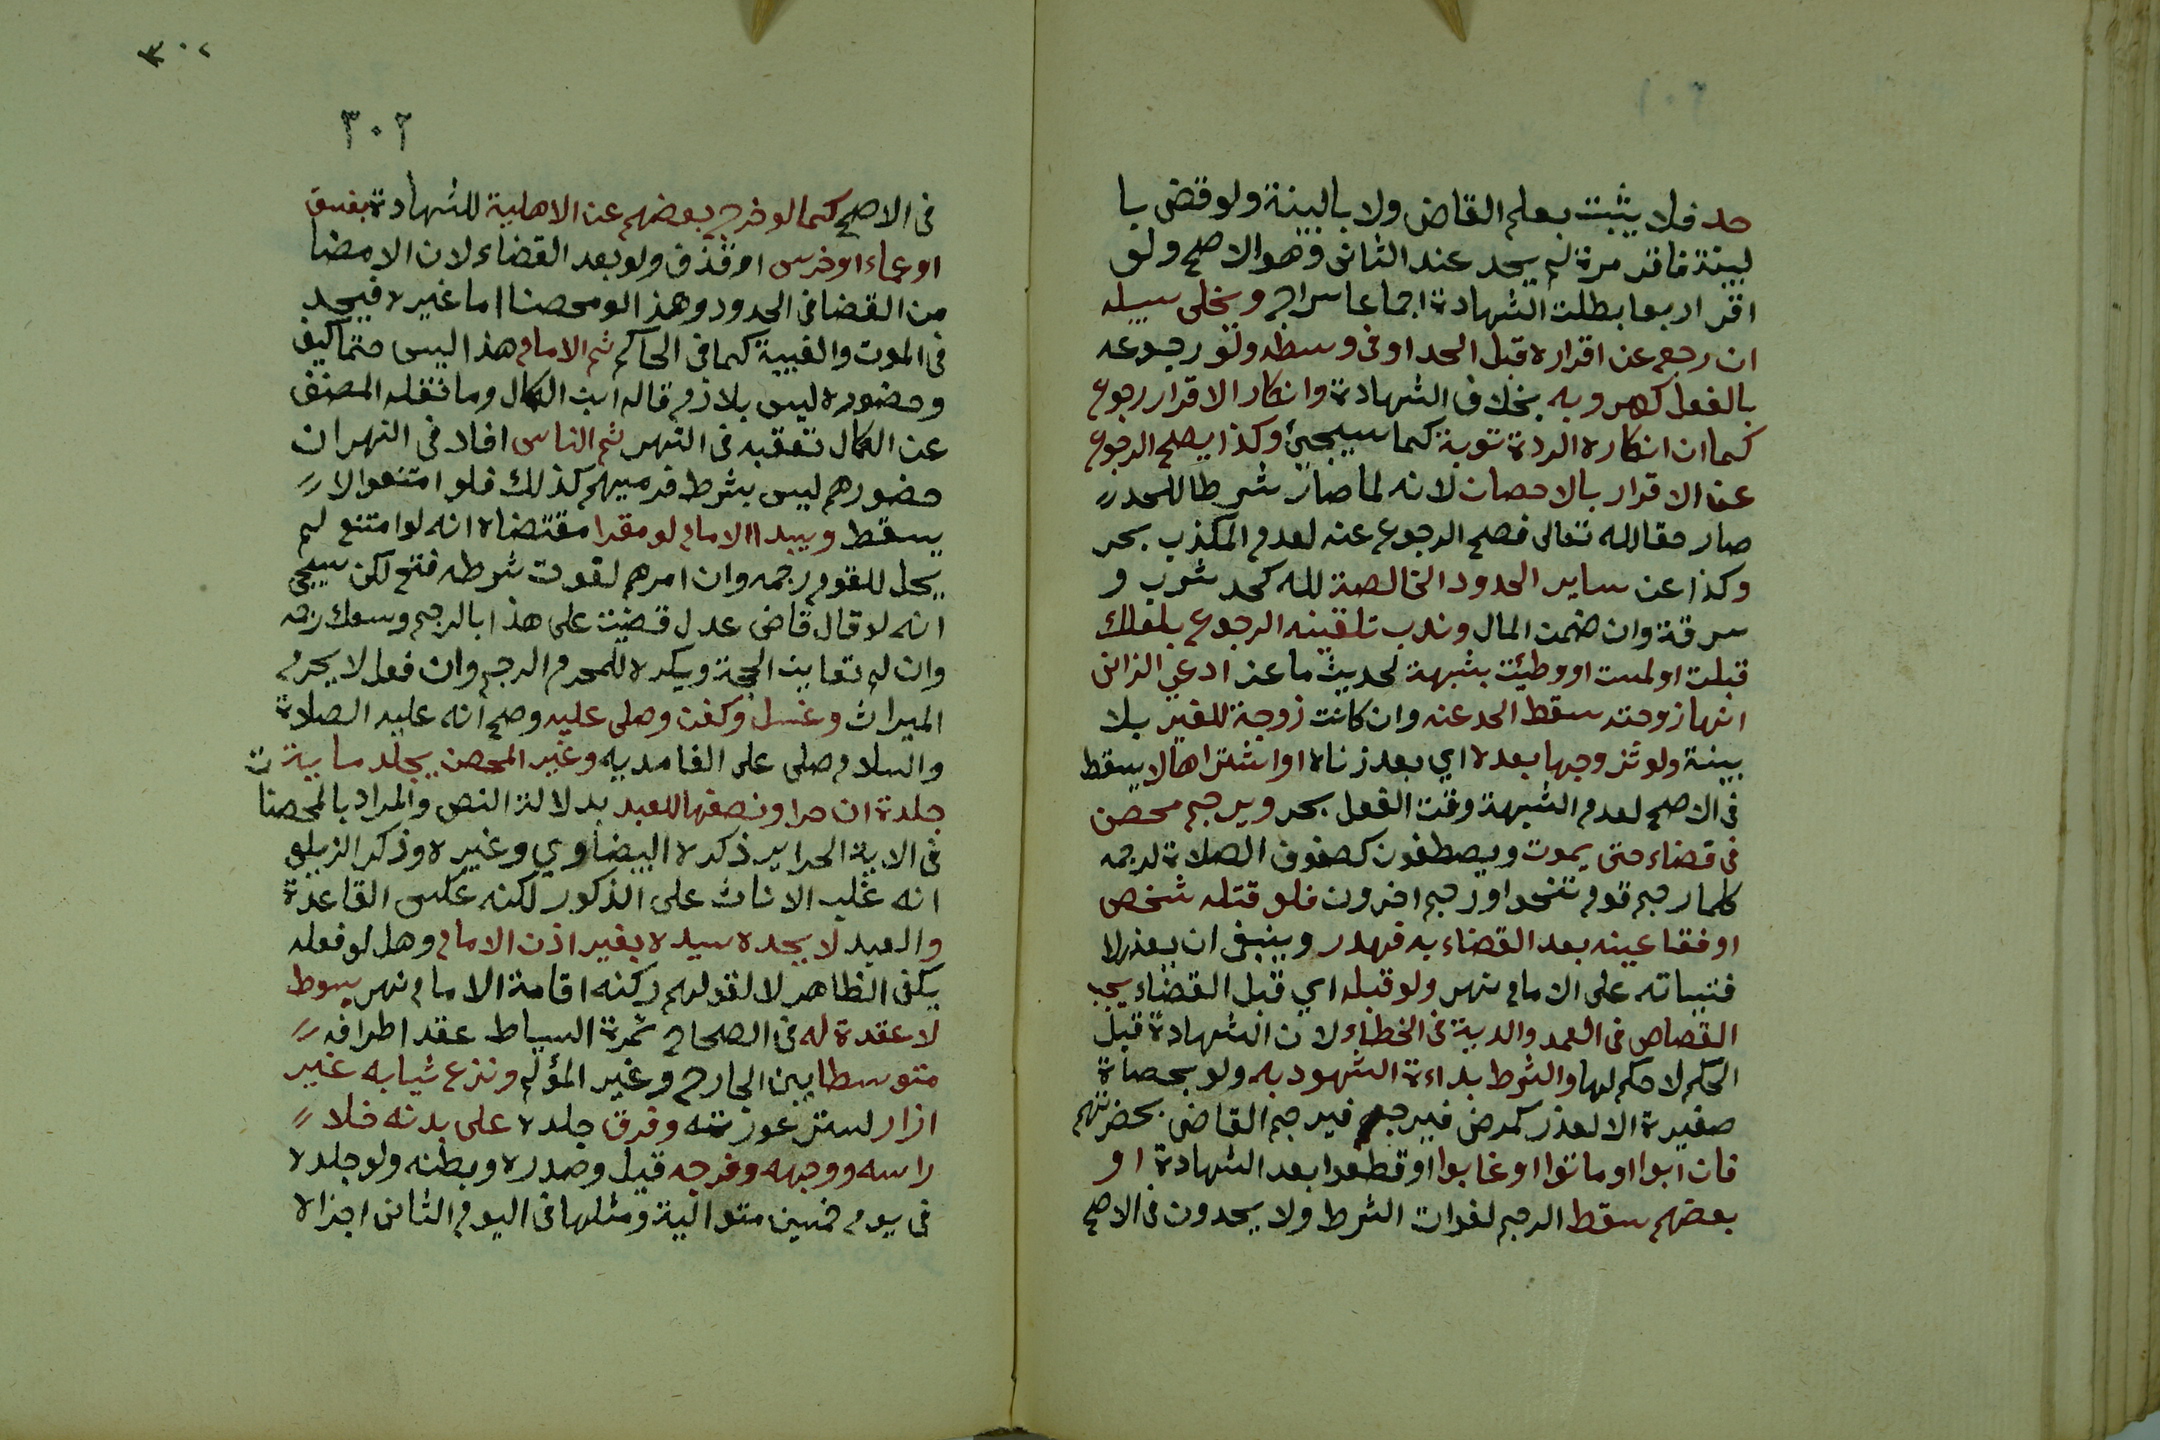 حد فلا يثبت بعلم القاضى ولا بالبينة ولو قضى با
لبينة فاقر مرة لم يحد عند الثانى وهو الاصح ولو
اقر اربعا بطلت الشهادة اجماعا سراج ويخلى سبيله
ان رجع عن اقراره قبل الحد او فى وسطه ولو رجوعه
بالفعل كهروبه بخلاف الشهادة وانكار الاقرار رجوع
كما ان انكاره الردة توبة كما سيجئ وكذا يصح الرجوع
عن الاقرار بالاحصان لانه لما صار شرطا للحد
صار حقا لله تعالى فصح الرجوع عنه لعدم المكذب بحر
وكذا عن ساير الحدود الخالصة لله كحد شرب و
سرقة وان ضمن المال وندب تلقينه الرجوع بلعلك
قبلت او لمست او وطيئت بشبهة لحديث ماعز ادعى الزانى
انها زوجته سقط الحد عنه وان كانت زوجة للغير بلا
بينة ولو تزوجها بعده اي بعد زناه او اشتراها لا يسقط
فى الاصح لعدم الشبهة وقت الفعل بحر ويرجم محصن
فى قضاء حتى يموت ويصطفون كصفوف الصلاة لرجمه
كلما رجم قوم تنحوا ورجم اخرون فلو قتله شخص
او فقا عينه بعد القضاء به فهدر وينبغى ان يعذر لا
فتياته على الامام نهر ولو قبله اي قبل القضاء يجب
القصاص فى العمد والدية فى الخطاء لان الشهادة قبل
الحكم لا حكم لها والشرط بداءة الشهود به ولو بحصاة
صغيرة الا لعذر كمرض فيرجم فيرجم القاضى بحضرتهم
فان ابوا او ماتوا او غابوا او قطعوا بعد الشهادة او
بعضهم سقط الرجم لفوات الشرط ولا يحدون فى الاصح
٣٠٢
٣٠٢
فى الاصح كما لو خرج بعضهم عن الاهلية للشهادة بفسق
او عماء او خرس او قذف ولو بعد القضاء لان الامضا
من القضا فى الحدود وهذا لو محصنا اما غيره فيحد
فى الموت والغيبة كما فى الحاكم ثم الامام هذا ليس حتما كيف
وحضوره ليس بلازم قاله ابن الكمال وما نقله المصنف
عن الكمال تعقبه فى النهر ثم الناس افاد فى النهر ان
حضورهم ليس بشرط فرميهم كذلك فلو امتنعوا لا
يسقط ويبدا الامام لو مقرا مقتضاه انه لو امتنع لم
يحل للقوم رجمه وان امرهم لفوت شرطه فتح لكن سيجى
انه لو قال قاضى عدل قضيت على هذا بالرجم وسعك رجمه
وان لم تعاين الحجة ويكره للمحرم الرجم وان فعل لا يحرم
الميراث وغسل وكفن وصلى عليه وصح انه عليه الصلاة
والسلام صلى على الغامديه وغير المحصن يجلد ماية ت
جلدة ان حرا ونصفها للعبد بدلالة النص والمراد بالمحصنا
فى الاية الحراير ذكره البيضاوي وغيره وذكر الزيلعى
انه غلب الاناث على الذكور لكنه عكس القاعدة
والعبد لا يحده سيده بغير اذن الامام وهل لو فعله
يكفى الظاهر لا لقولهم ركنه اقامة الامام نهر بسوط
لا عقدة له فى الصحاح ثمرة السياط عقد اطرافه
متوسطا بين الجارح وغير المؤلم ونزع ثيابه غير
ازار لستر عورته وفرق جلده على بدنه خلا
راسه ووجهه وفرجه قيل وصدره وبطنه ولو جلده
فى يوم خمسين متوالية ومثلها فى اليوم الثانى اجزاه